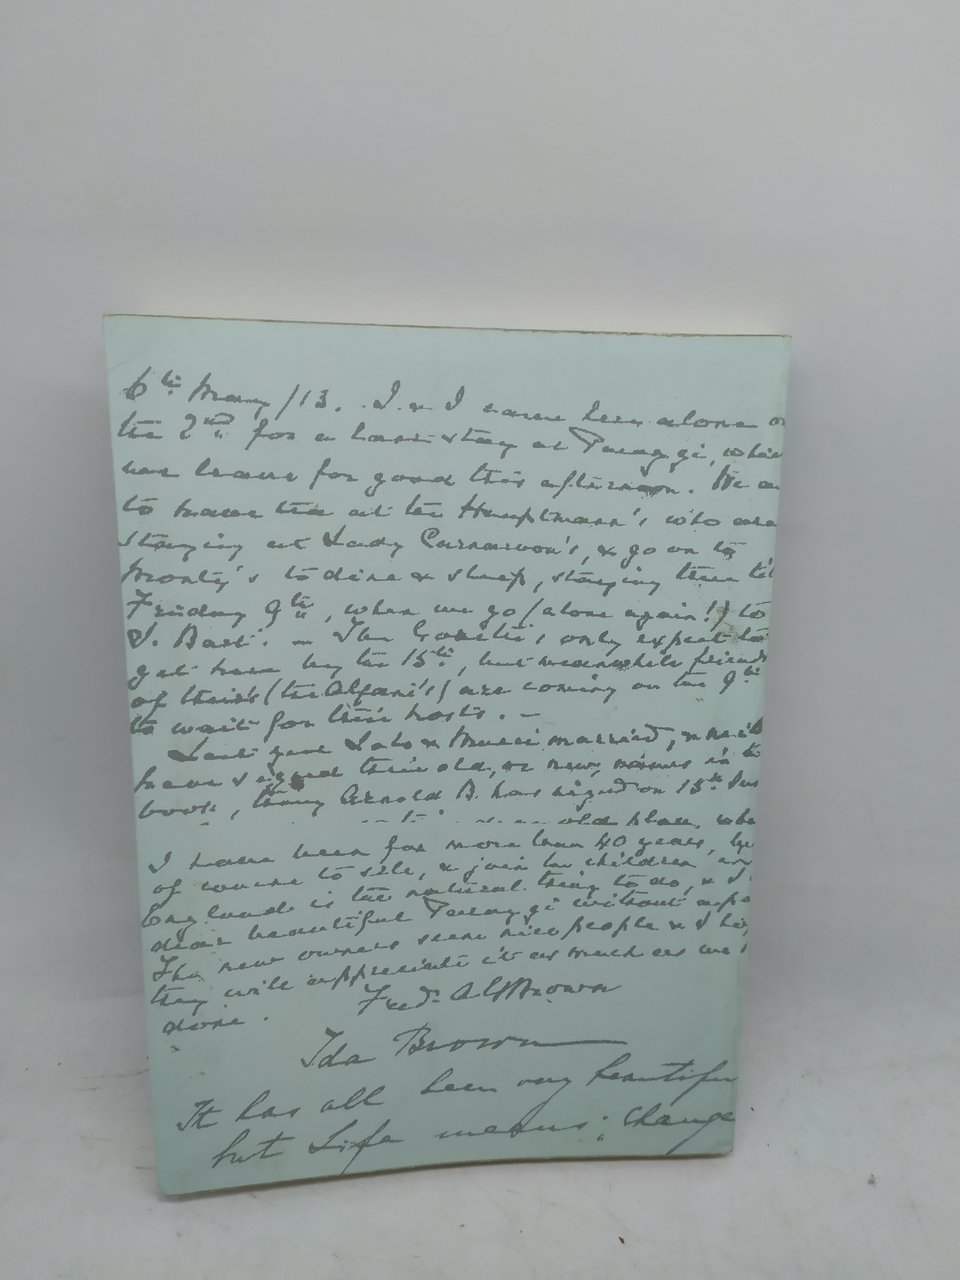 6th May /13. I. & I came here alone on
the 2nd for a last stay at Paraggi, which
we leave for good this afternoon. We are
to have tea at the Hauptmann's who are
staying at Lady Carnarvon's, & go on to
Monty's to dine & sleep, staying there til
Friday 9th, when we go (alone again!) to
S. Bart. — The only expect to
get here by the 15th, but meanwhile friends
of theirs (the Alfani's) are coming on the 9th
to wait for their hosts. —
Last year & married, &
have signed their old, or new, names in the
book, Arnold B. has signed on 13th
old place, whe
I have been for more than 40 years,
of course to sell, & join the children
England is the natural thing to do, & I
dear beautiful Paraggi without a
The new owners seem nice people & I
they will appreciate it as much as we
done. Fredk Brown
Ida Brown
It has all been very beautiful
but Life means: Change